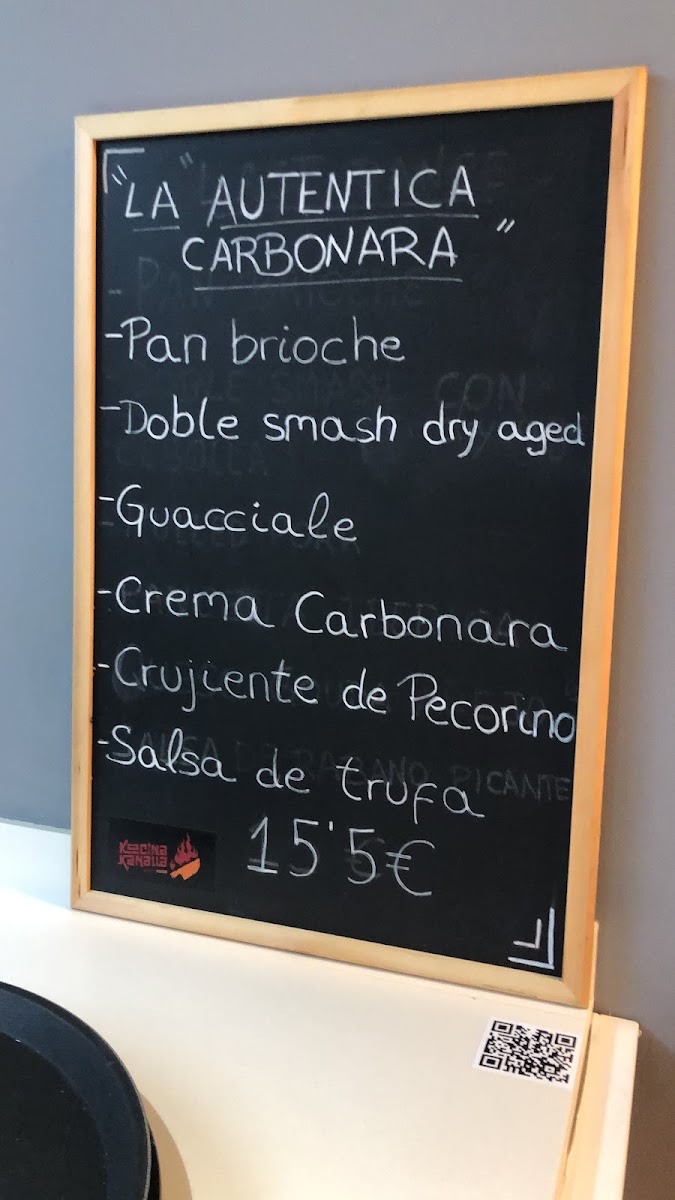 "LA AUTENTICA
CARBONARA"
-Pan brioche
-Doble smash dry aged
-Guacciale
-Crema Carbonara
-Crujiente de Pecorino
-Salsa de trufa
15'5€
Kocina
Kanalla